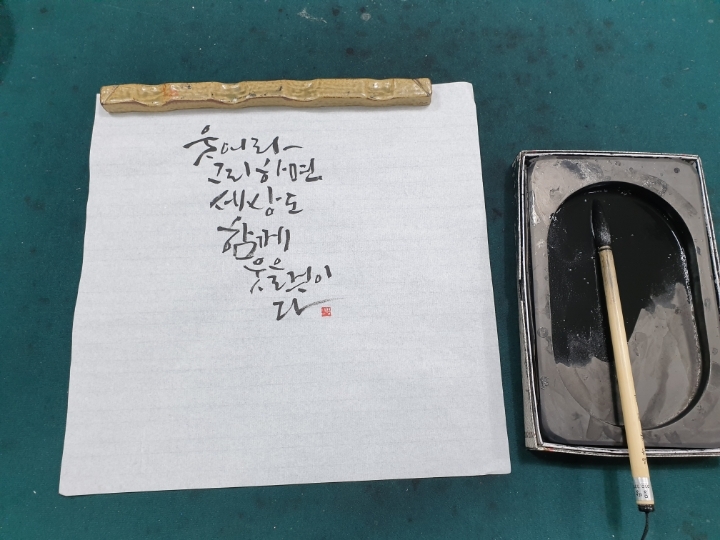 웃어라
그리하면
세상도
함께
웃을것이
다